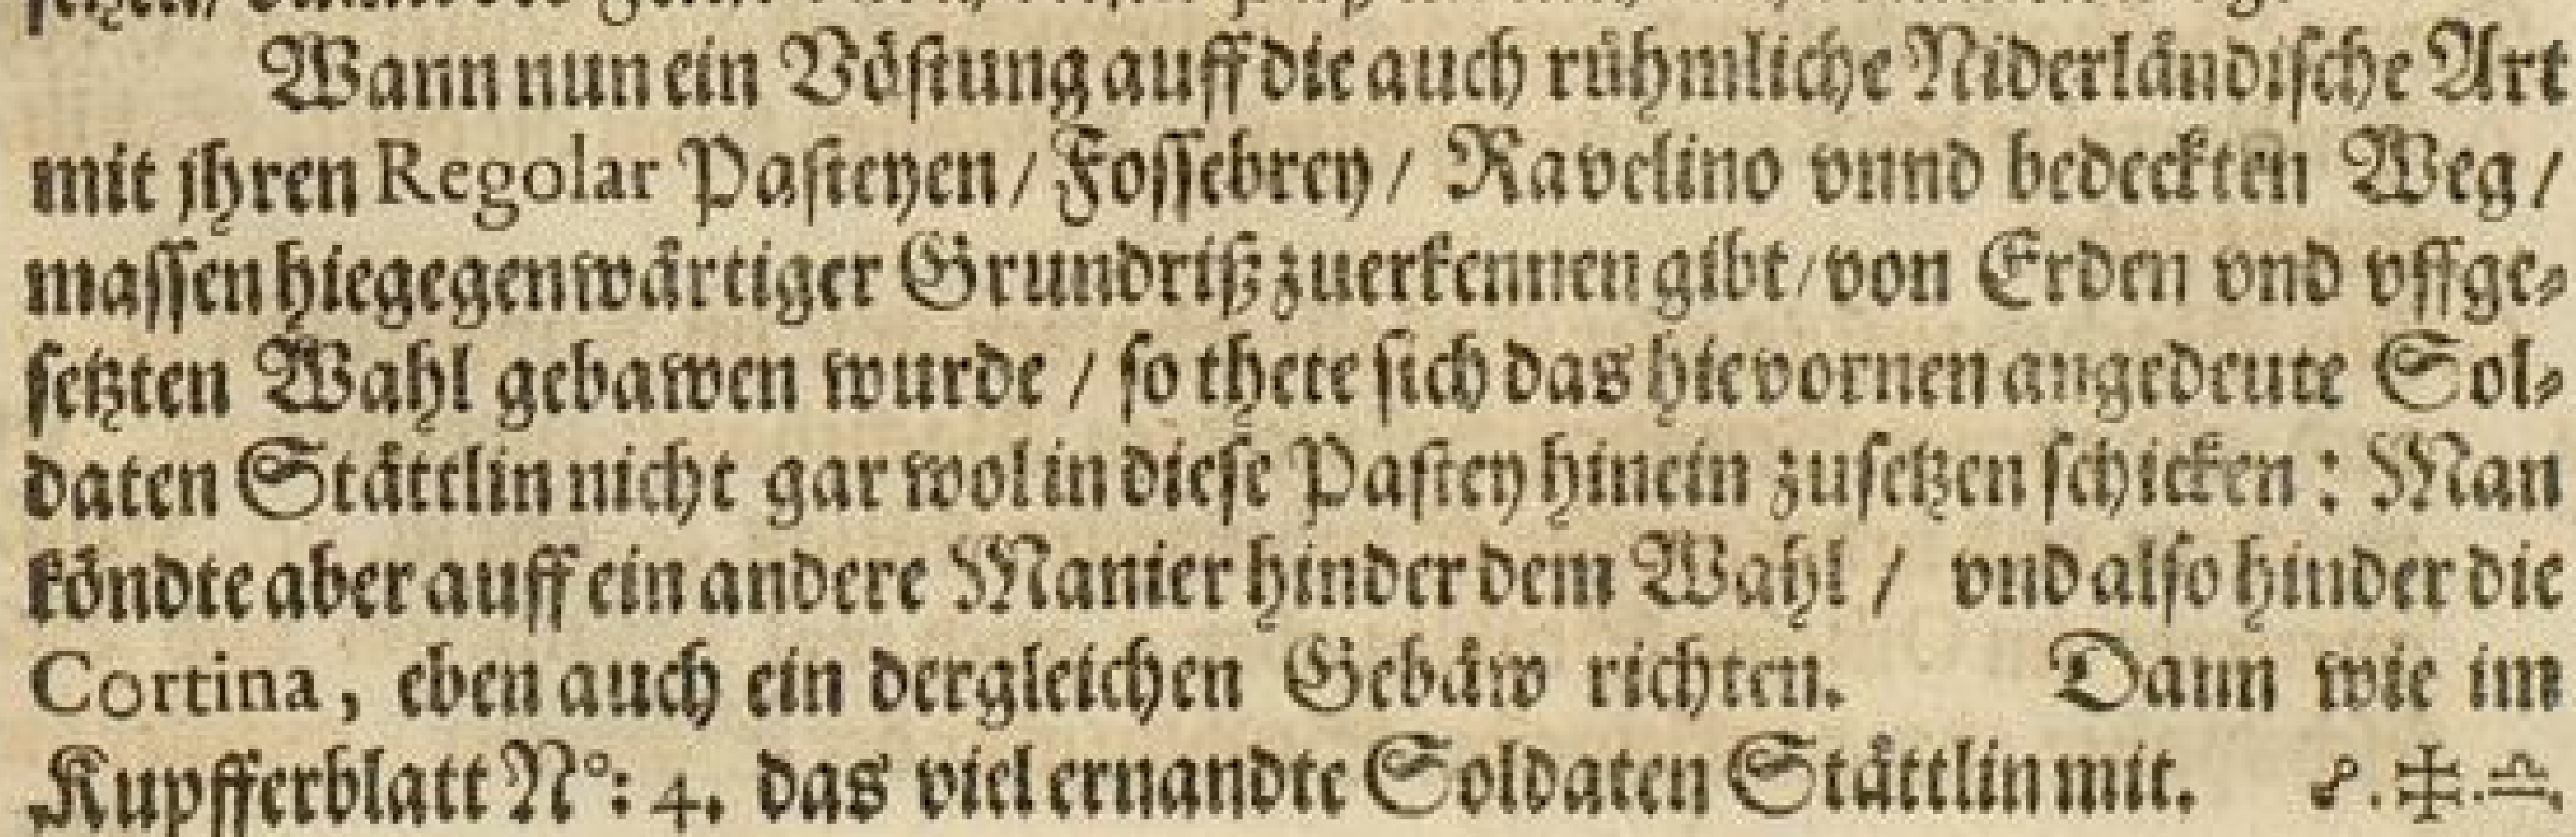 Wann nun ein Vöſtung auff die auch rühmliche Niderländiſche Art
mit jhren Regolar Paſteyen / Foſſebrey / Ravelino vnnd bedeckten Weg /
maſſen hiegegenwärtiger Grundriß zuerkennen gibt / von Erden vnd vffge⸗
ſetzten Wahl gebawen wurde / ſo thete ſich das hievornen angedeute Sol⸗
daten Stättlin nicht gar wol in dieſe Paſtey hinein zuſetzen ſchicken : Man
köndte aber auff ein andere Manier hinder dem Wahl / vnd alſo hinder die
Cortina, eben auch ein dergleichen Gebäw richten. Dann wie im
Kupfferblatt N°: 4. das viel ernandte Soldaten Stättlin mit. ☍.✠.♎.